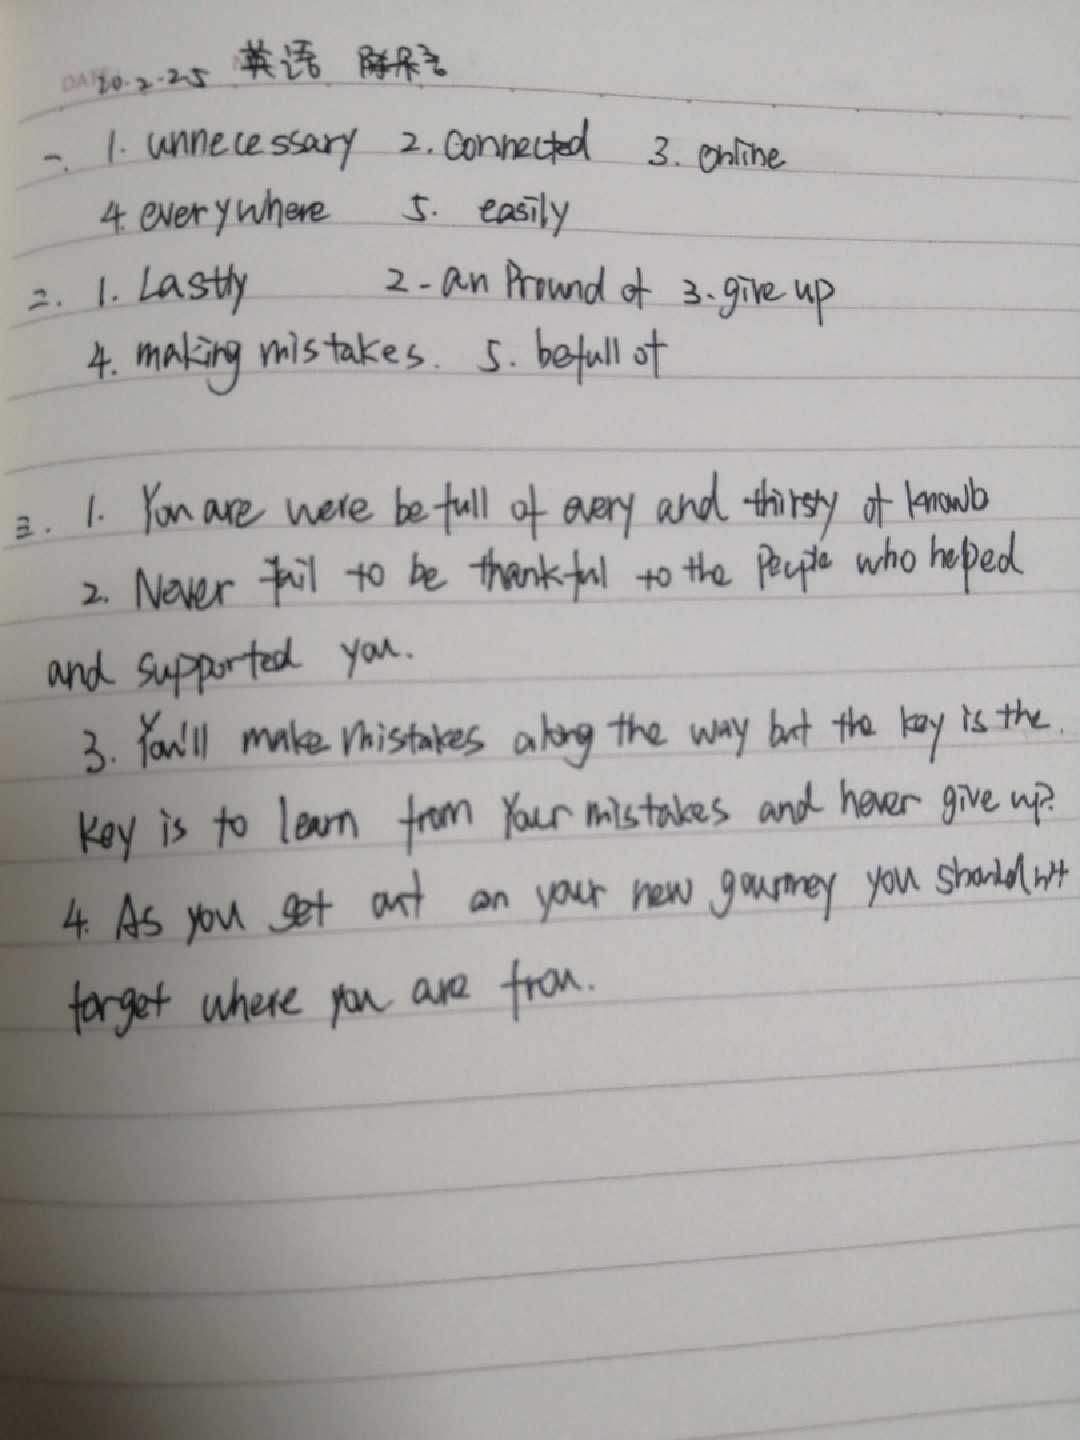 20.2.25 英语
一. 1. unnecessary 2. connected 3. online
4. everywhere 5. easily
二. 1. Lastly 2 - an Pround of 3. give up
4. making mistakes. 5. befull of
三. 1. You are were be full of every and thirsty of
2. Never fail to be thankful to the people who helped
and supported you.
3. You'll make mistakes along the way but the key is the.
key is to learn from Your mistakes and never give up?
4. As you set out on your new gourney you should n't
forget where you are from.